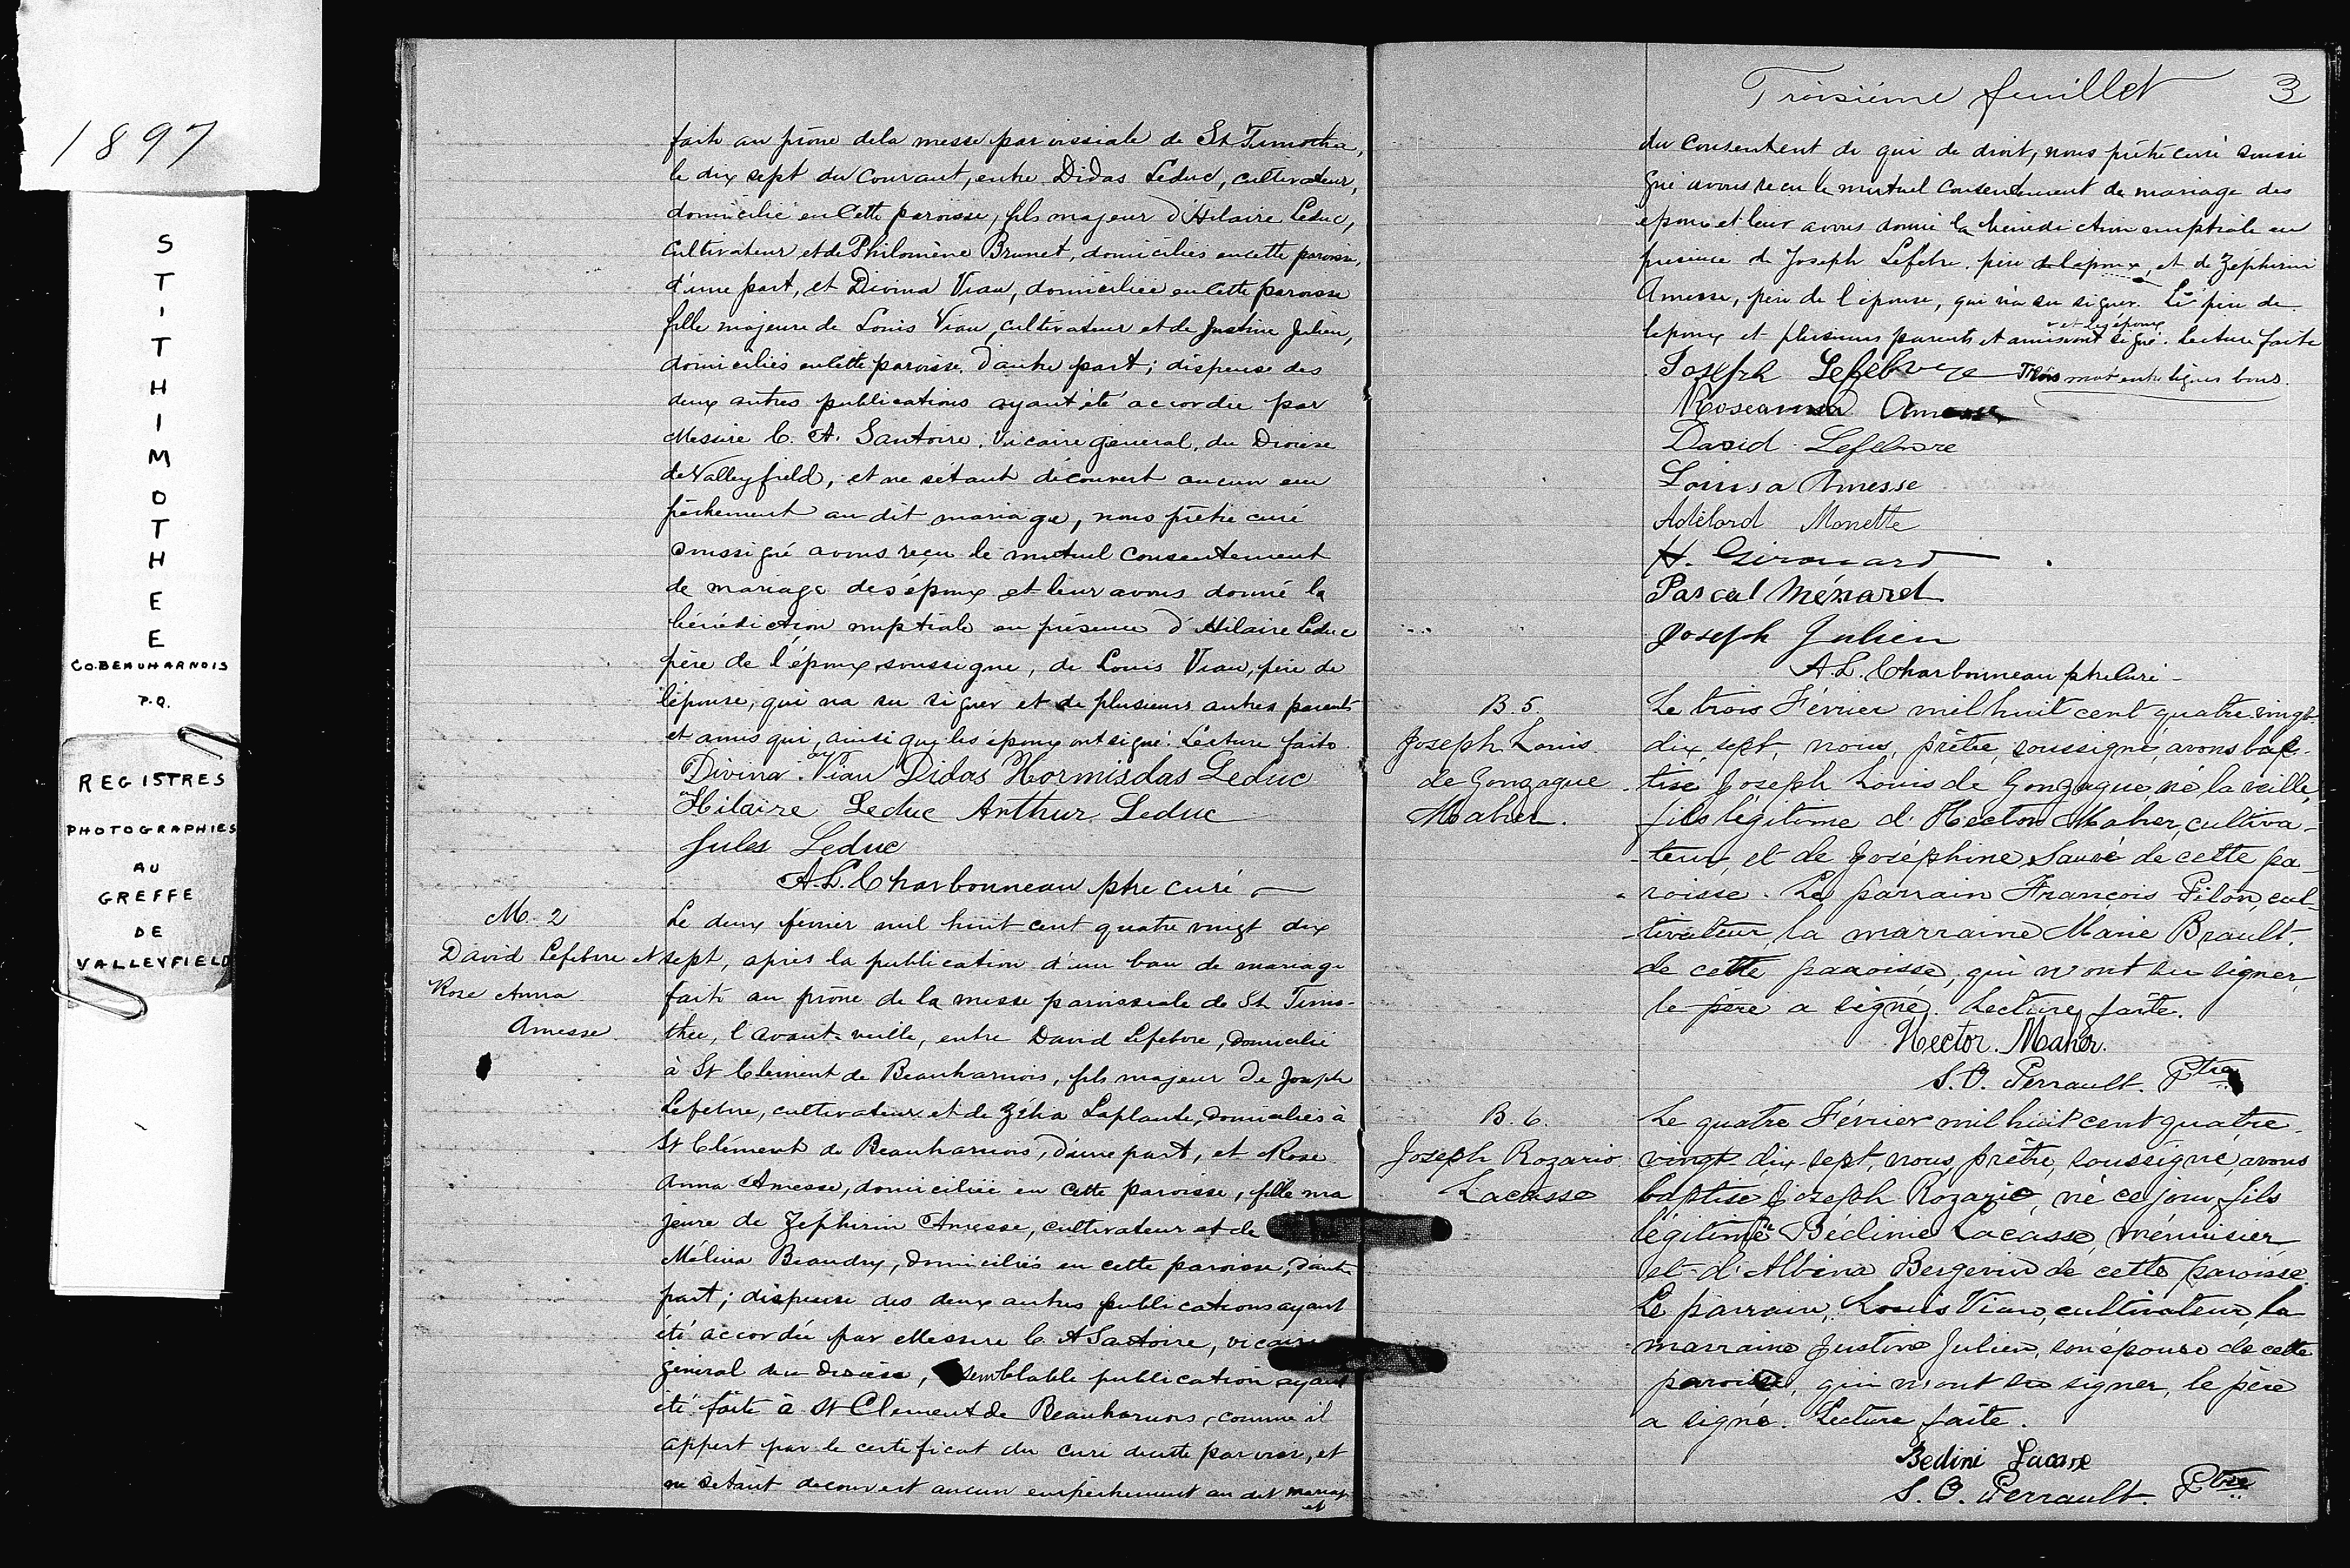 1897
ST-THIMOTHEE
CO. BEAUHARNOIS
P.Q.
REGISTRES
PHOTOGRAPHIES
AU
GREFFE
DE
VALLEYFIELD
faite au prône de la messe paroissiale de St Timothée,
le dix sept du Courant, entre Didas Leduc, cultivateur,
domicilié en cette paroisse, fils majeur d'Hilaire Leduc,
cultivateur et de Philomène Brunet, domiciliés en cette paroisse,
d'une part, et Divina Viau, domiciliée en cette paroisse
fille majeure de Louis Viau, cultivateur et de Justine Julien,
domiciliés en cette paroisse, d'autre part; dispense des
deux autres publications ayant été accordée par
Messire C. A. Santoire, Vicaire général, du Diocèse
de Valleyfield, et ne s'étant découvert aucun em
pêchement au dit mariage, nous prêtre curé
soussigné avons reçu le mutuel consentement
de mariage des époux et leur avons donné la
bénédiction nuptiale en présence d'Hilaire Leduc
père de l'époux soussigné, de Louis Viau, père de
l'épouse, qui n'a su signer et de plusieurs autres parents
et amis qui, ainsi que les époux ont signé. Lecture faite.
Divina Viau Didas Hormisdas Leduc
Hilaire Leduc Arthur Leduc
Jules Leduc
A.L. Charbonneau ptre curé
M. 2
David Lefebvre et
Rose Anna
Amesse.
Le deux février mil huit cent quatre vingt dix
sept, après la publication d'un ban de mariage
faite au prône de la messe paroissiale de St Timo-
thée, l'avant-veille, entre David Lefebvre, domicilié
à St Clément de Beauharnois, fils majeur de Joseph
Lefebvre, cultivateur et de Zélia Laplante, domiciliés à
St Clément de Beauharnois, d'une part, et Rose
Anna Amesse, domiciliée en cette paroisse, fille ma
jeure de Zéphirin Amesse, cultivateur et de
Mélina Beaudry, domiciliés en cette paroisse, d'autre
part; dispense des deux autres publications ayant
été accordée par Messire C. A Santoire, vicaire
général du diocèse, semblable publication ayant
été faite à St Clement de Beauharnois, comme il
appert par le certificat du curé de cette paroisse, et
ne s'étant découvert aucun empêchement au dit mariage
et
Troisième feuillet 3
du consentent de qui de droit, nous prêtre curé soussi
gné avons reçu le mutuel consentement de mariage des
époux et leur avons donné la bénédiction nuptiale en
présence de Joseph Lefebvre, père de l'époux, et de Zéphirin
Amesse, père de l'épouse, qui n'a su signer. Le père de
l'époux et plusieurs parents et amis ont signé. Lecture faite
et les époux
Joseph Lefebvre Trois mots entre lignes bons.
Roseanna Amesse
David Lefebvre
Louisa Amesse
Adélard Monette
H. Girouard
Pascal Ménard
Joseph Julien
A.L. Charbonneau ptre Curé
B. 5.
Joseph Louis
de Gonzague
Maher.
Le trois Février mil huit cent quatre-vingt-
dix sept, nous, prêtre, soussigné, avons bap-
tisé Joseph Louis de Gonzague, né la veille,
fils légitime d'Hector Maher, cultiva-
teur, et de Joséphine Sauvé de cette pa-
roisse. Le parrain François Pilon, cul-
tivateur, la marraine Marie Brault,
de cette paroisse, qui n'ont su signer,
le père a signé. Lecture faite.
Hector Maher.
S. O. Perrault. Ptre
B. 6.
Joseph Rozario
Lacasse
Le quatre Février mil huit cent quatre-
vingt-dix-sept, nous, prêtre, soussigné, avons
baptisé Joseph Rozario, né ce jour, fils
légitime Bédime Lacasse, menuisier
et d'Albina Bergevin de cette paroisse.
Le parrain, Louis Viau, cultivateur, la
marraine Justine Julien, son épouse de cette
paroisse, qui n'ont su signer, le père
a signé. Lecture faite.
Bedini Lacasse
S. O. Perrault. Ptre